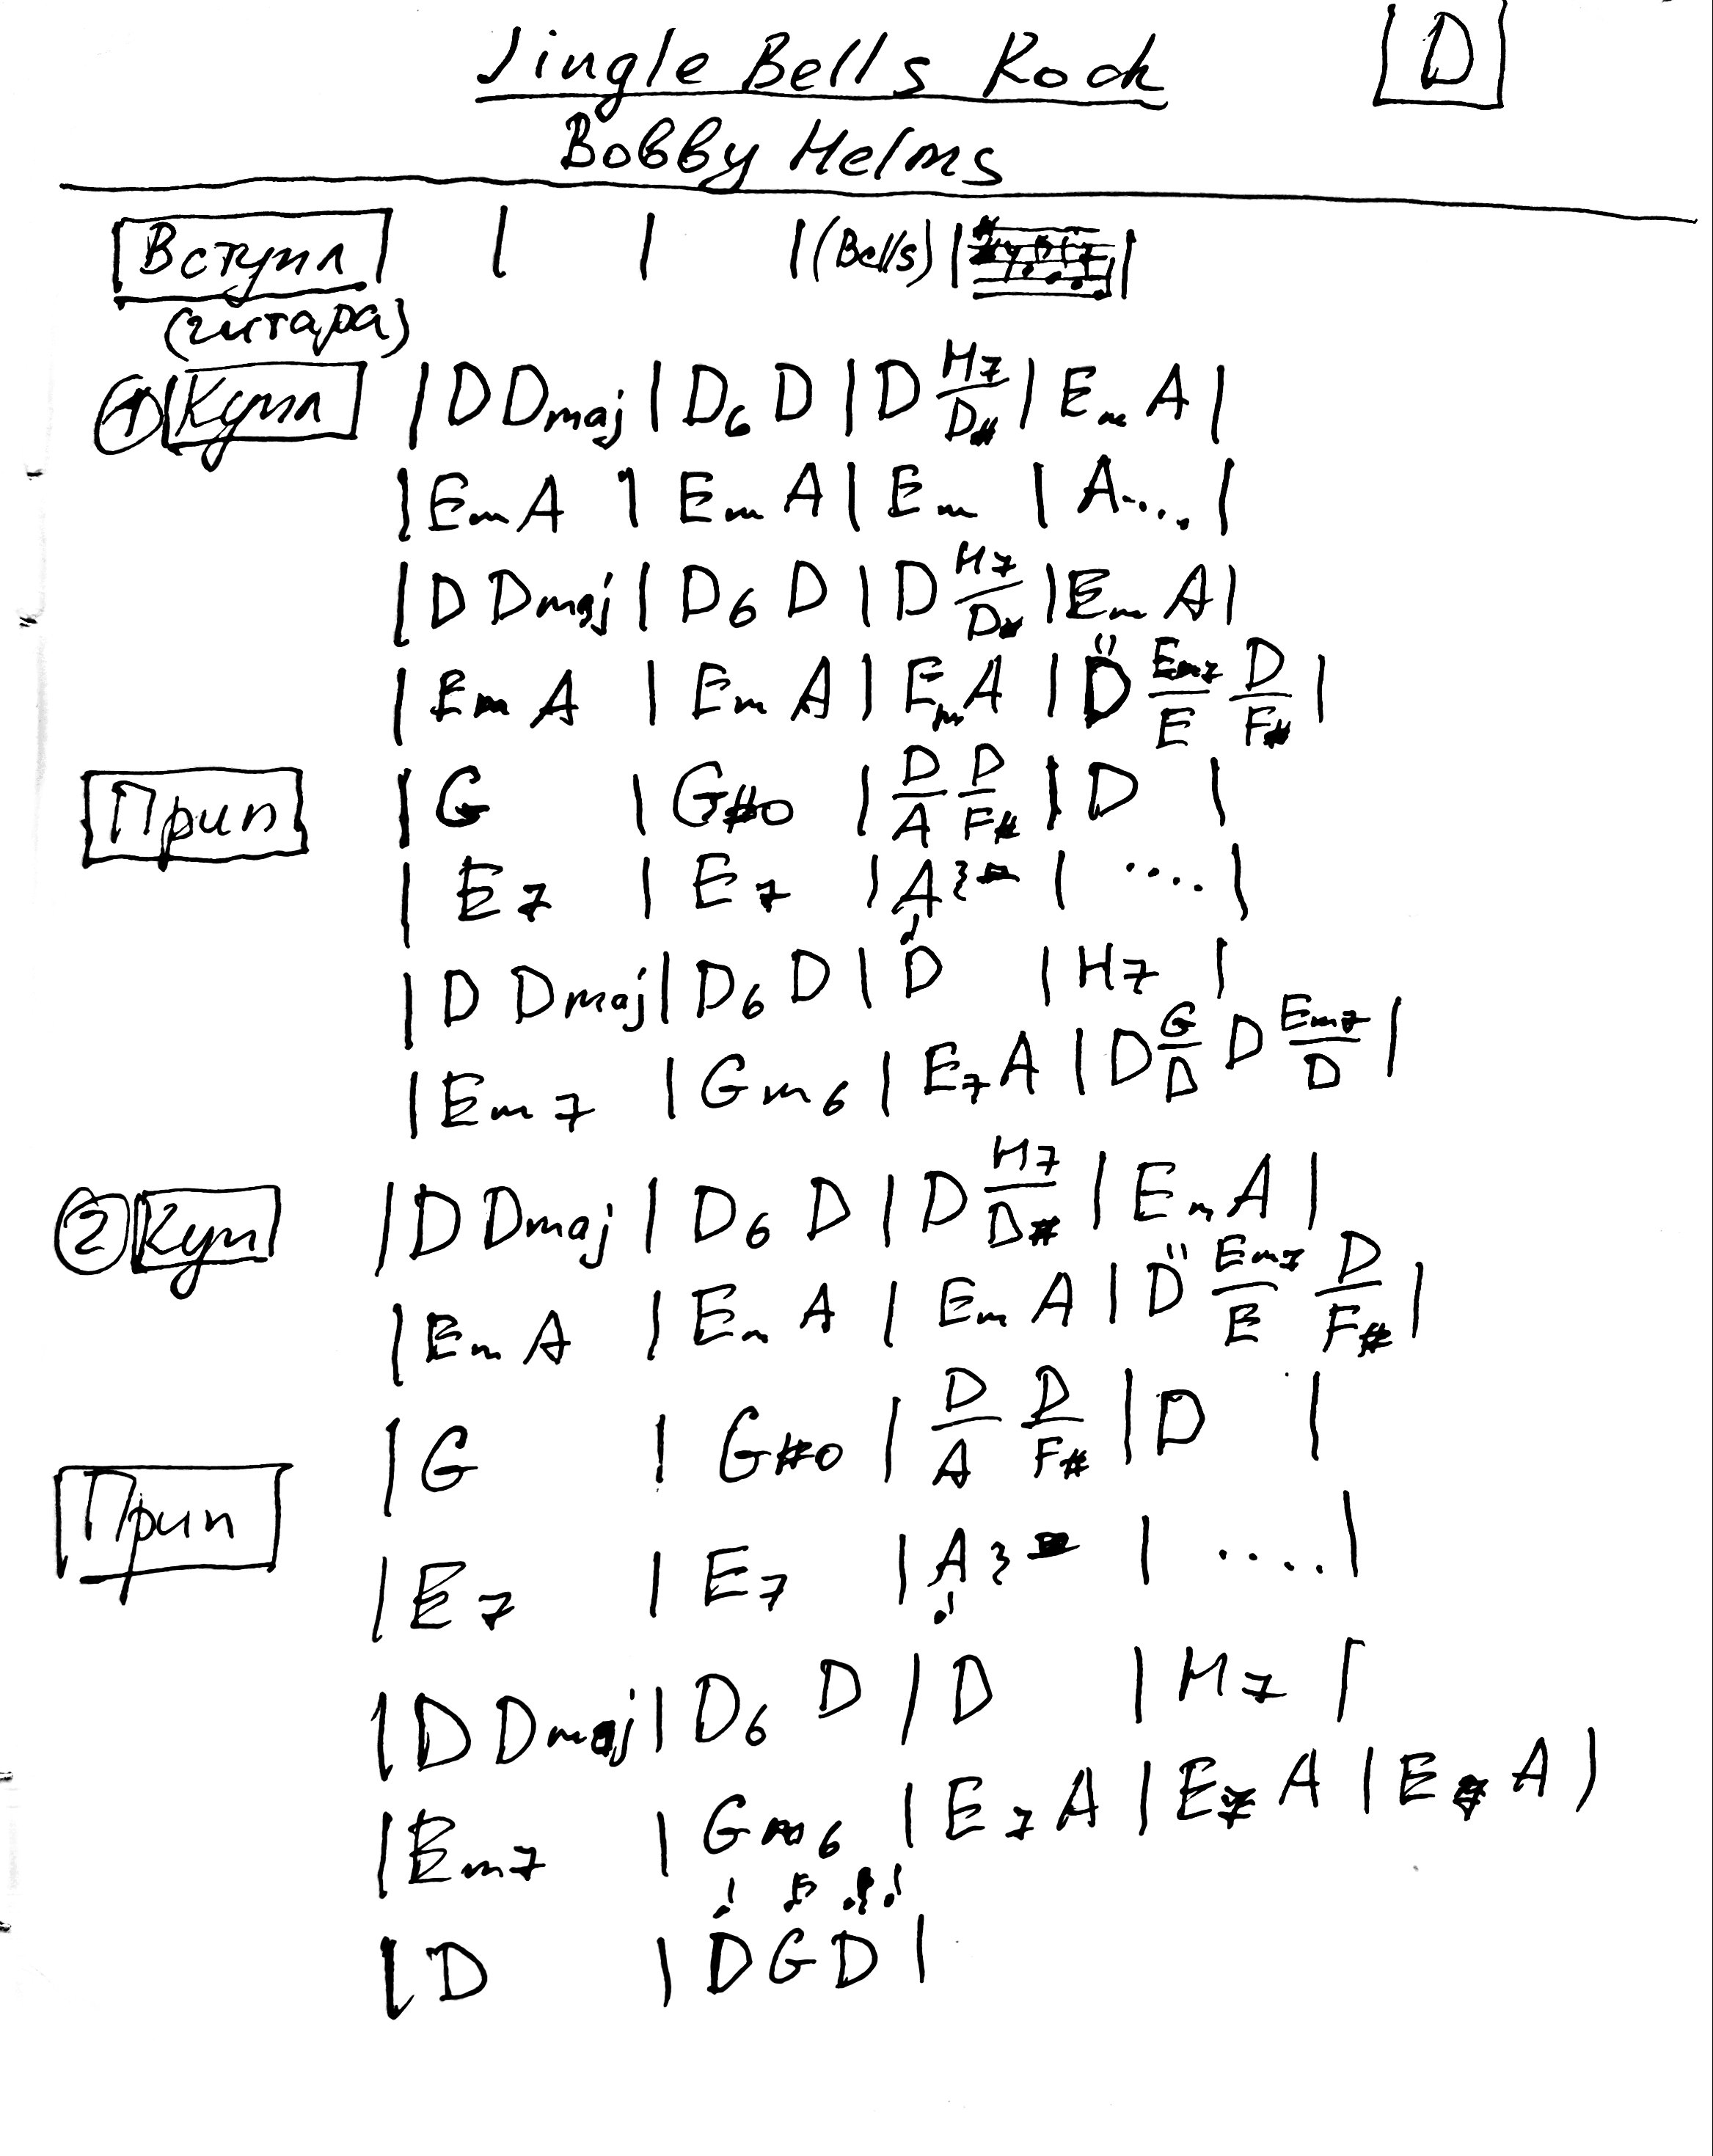 Jingle Bells Rock
D
Bobby Helms
Вступл | | | (Bells) | |
(гитара)
① Купл | D Dmaj | D6 D | D H7/D# | Em A |
| Em A | Em A | Em | A.... |
| D Dmaj | D6 D | D H7/D# | Em A |
| Em A | Em A | Em A | D Em7/E D/F# |
Прип | G | G#o | D/A D/F# | D |
| E7 | E7 | A | .... |
| D Dmaj | D6 D | D | H7 |
| Em7 | Gm6 | E7 A | D G/D D Em7/D |
② Куп | D Dmaj | D6 D | D H7/D# | Em A |
| Em A | Em A | Em A | D Em7/E D/F# |
Прип | G | G#o | D/A D/F# | D |
| E7 | E7 | A | .... |
| D Dmaj | D6 D | D | H7 |
| Em7 | Gm6 | E7 A | E7 A | E7 A |
| D | D G D |